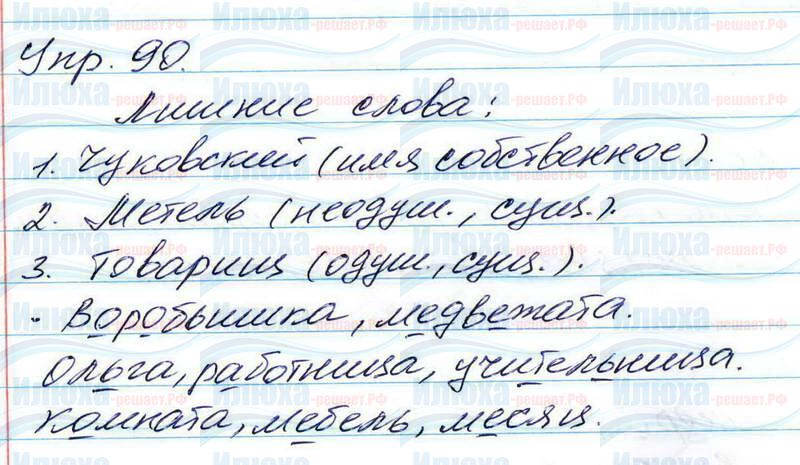 Упр. 90.
Лишние слова:
1. Чуковский (имя собственное).
2. Метель (неодуш., сущ.).
3. Товарищ (одуш., сущ.).
- Воробышка, медвежата.
Ольга, работница, учительница.
Комната, мебель, месяц.
Илюха-решает.РФ